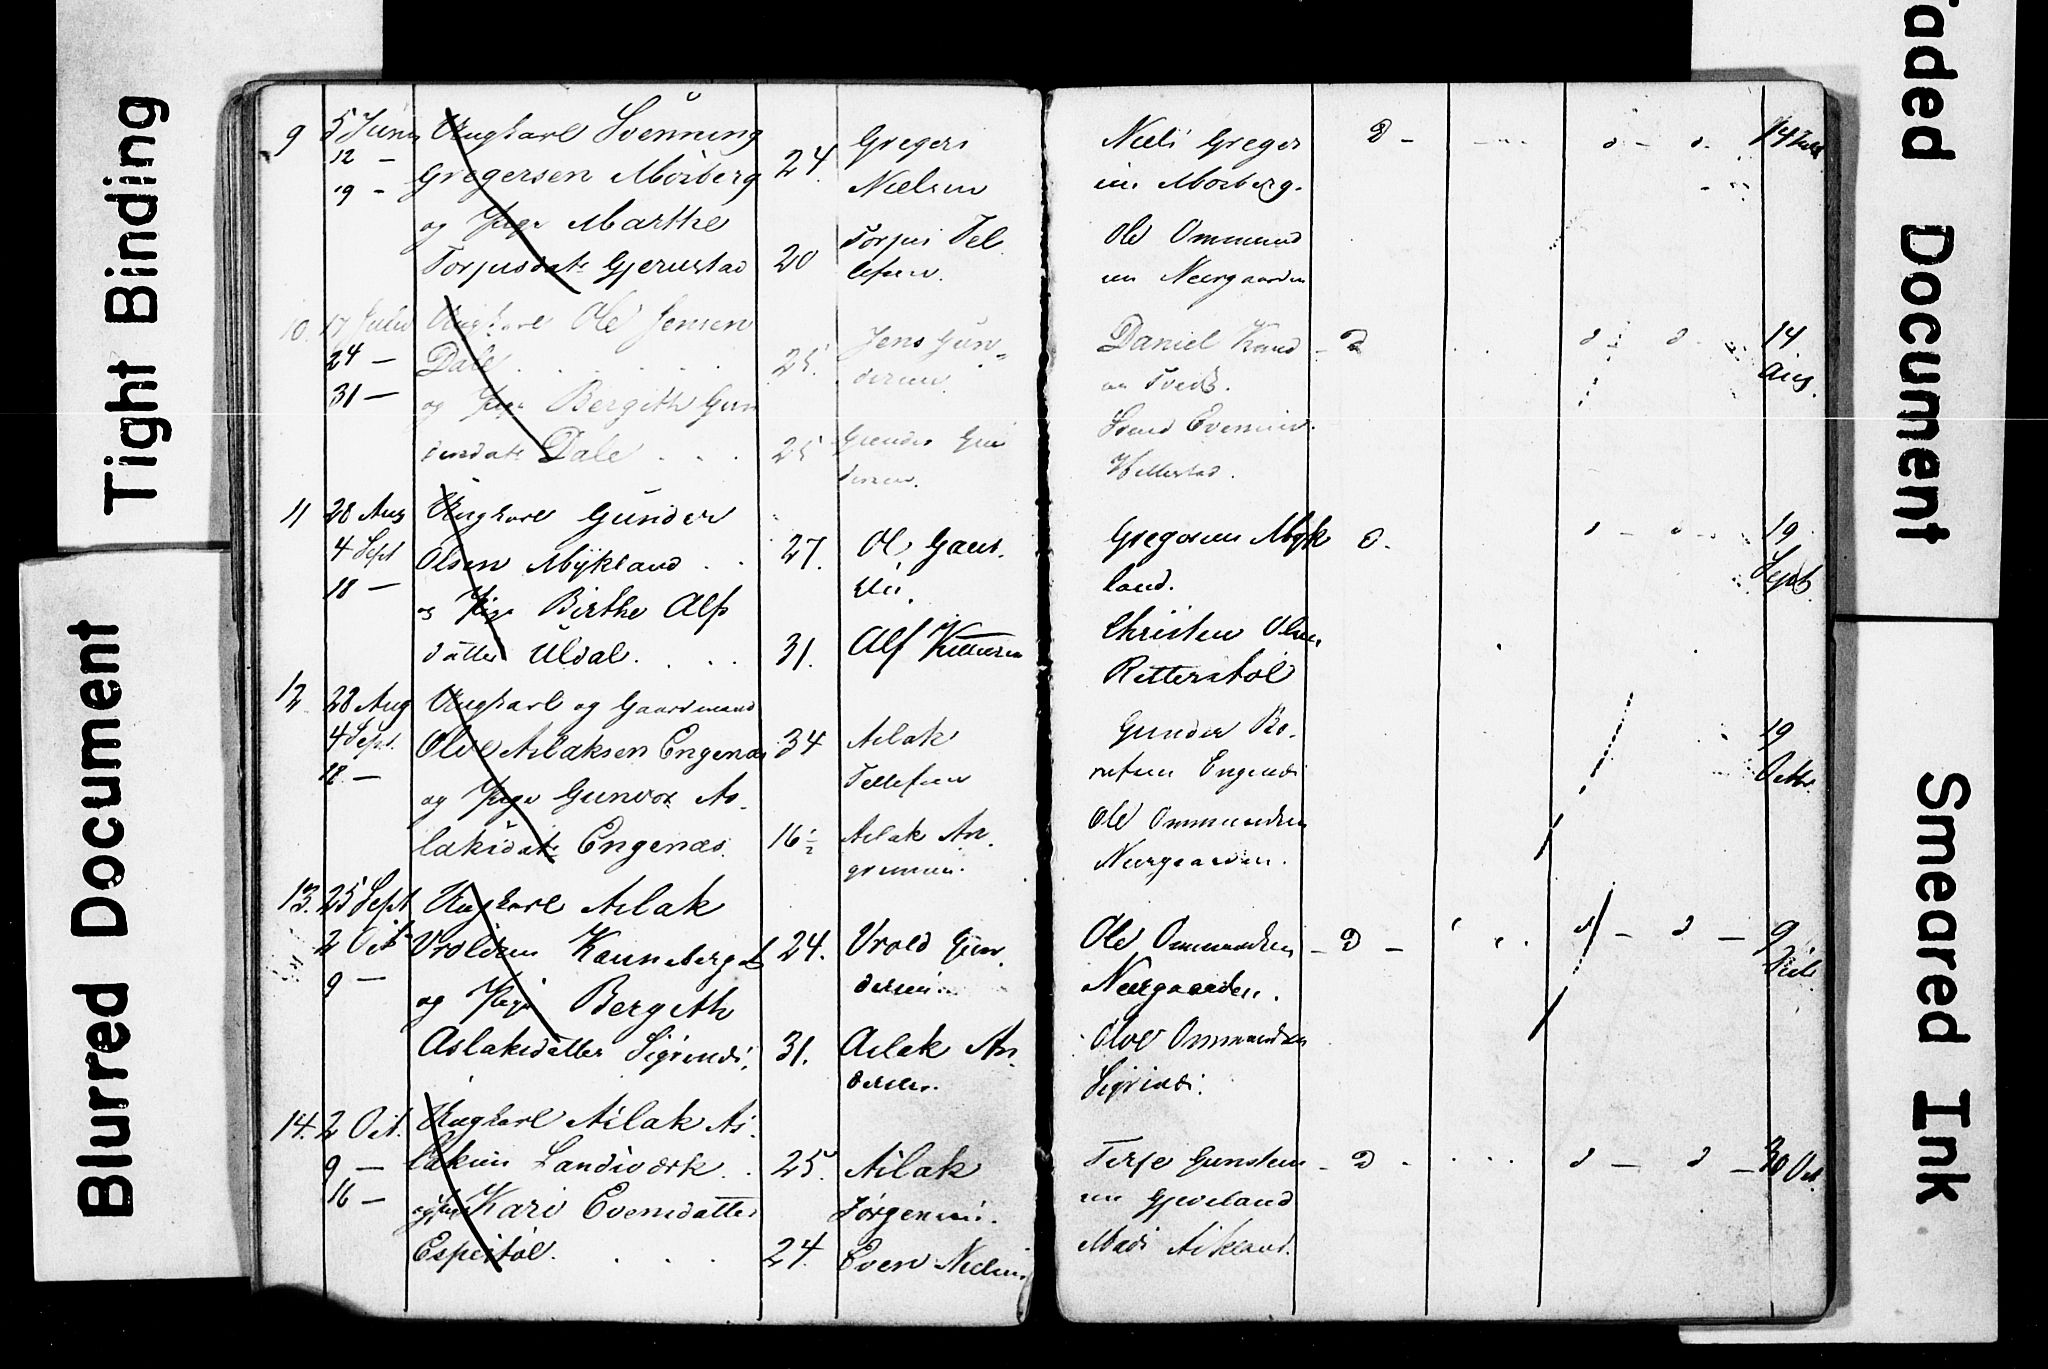 Tight Binding
Blurred Document
Faded Document
Smeared Ink
9 5 Juni Ungkarl Svenning
12 — Gregersen Mosberg 24. Gregers
19 — og Pige Marthe Nielsen
Torjusdatr Gjerustad 20 Torjus Tel
lefsen.
Niels Greger
sen Mosberg.
Ole Ommund
sen Neergaarden
D — 14 Juli
10. 17 Julii Ungkarl Ole Jensen
24 — Dale . . . . . 25. Jens Gun
31 — og Pige Bergith Gun dersen
dersdatr Dale . . . 25 Gunder Gun
dersen.
Daniel Knud
sen Tveds.
Svend Evensen
Hillestad.
D 14
Aug.
11 28 Aug Ungkarl Gunder
4 Sept Olsen Mykland . . 27. Ole Gaus.
18 — og Pige Birthe Alfs
datter Uldal. . . . 31. Alf
Gregorius Myk
land.
Christen Olsen
Retterstøl
D. 19
Sept.
12 28 Aug Ungkarl og Gaardmand
4 Sept. Olve Aslaksen Engenæs 34 Aslak
18 — og Pige Gunvor As- Tellefsen
laksdatr Engenæs. 16 ½ Aslak An
Gunder
Engenæs
Ole Ommundsen
Neergaarden.
19
Octbr.
13. 25 Sept Ungkarl Aslak
2 Oct Vroldsen Kaunebergd 24. Vrold Gun
9 — og Pige Bergith dersen
Aslaksdatter Sigrinds. 31. Aslak An
dersen.
Ole Ommundsen
Neergaarden.
Olve Ommundsen
Sigrinds.
— D — d — d — 9
14. 2 Oct. Ungkarl Aslak As-
9 — laksen Landsværk . 25. Aslak
16 — og Pige Kari Evensdatter Jørgensen.
Espestøl. . . . 24. Even Nielsen
Terje Gunsten
sen Gjeveland
Mads Askland.
— D . . . . d — d — 30 Oct.